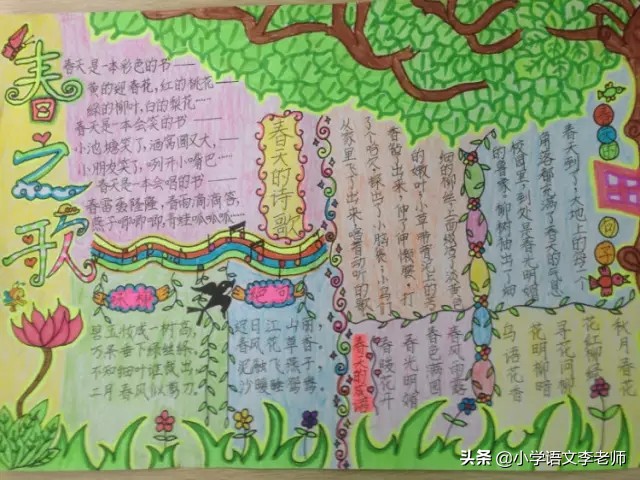 春之歌
春天是一本彩色的书——
黄的迎春花，红的桃花——
绿的柳叶，白的梨花……
春天是一本会笑的书——
小池塘笑了，酒窝圆又大，——
小朋友笑了，咧开小嘴巴……
春天是一本会唱的书——
春雷轰隆隆，春雨滴滴答，
燕子唧唧唧，青蛙呱呱呱……
春天的诗歌
咏柳
碧玉妆成一树高，
万条垂下绿丝绦。
不知细叶谁裁出，
二月春风似剪刀。
迟日江山丽，
春风花草香。
泥融飞燕子，
沙暖睡鸳鸯。
春天的句子
春天到了，大地上的每一个
角落都充满了春天的气息
校园里，到处是春光明媚
的景象，柳树抽出了细
细的柳丝，上面缀满了淡黄色
的嫩叶，小草带着光的
春天的成语
秋月春花
花红柳绿
寻花问柳
花明柳暗
鸟语花香
春风雨露
春色满园
春光明媚
春暖花开
头条 @小学语文李老师